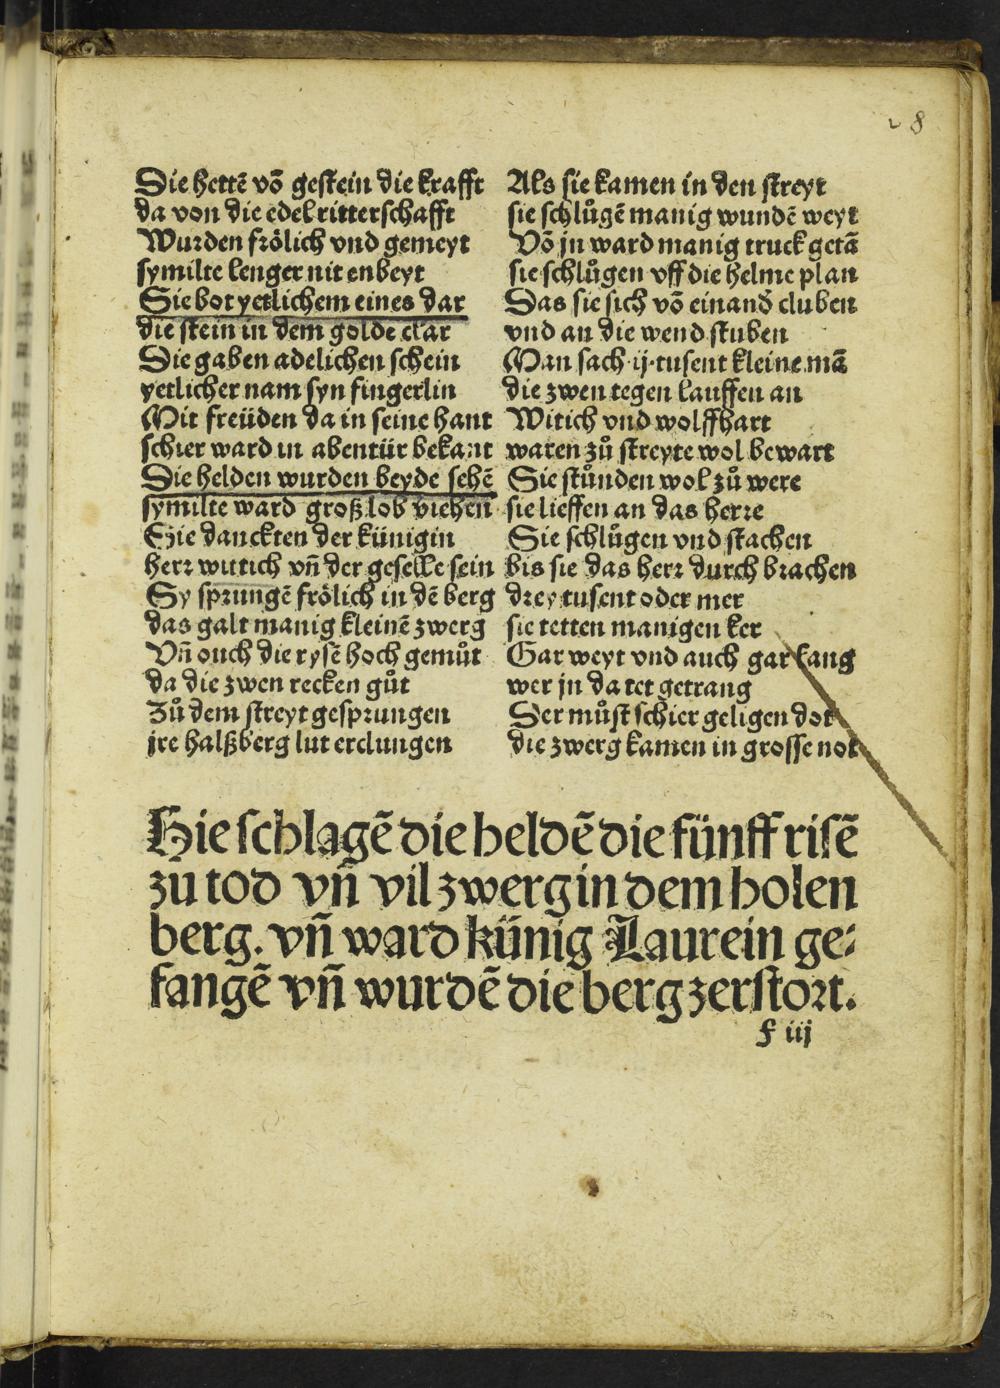 28
Die hettē vō gestein die krafft
da von die edel ritterschafft
Wurden frölich vnd gemeyt
symilte lenger nit enbeyt
Sie bot yetlichem eines dar
die stein in dem golde clar
Sie gaben adelichen schein
yetlicher nam syn fingerlin
Mit freüden da in seine hant
schier ward in abentür bekant
Die helden wurden beyde sehē
symilte ward groß lob viehen
Sie danckten der künigin
herr witich vñ der geselle sein
Sy sprungē frölich in dē berg
das galt manig kleinē zwerg
Vñ ouch die rysē hoch gemůt
da die zwen recken gůt
Zů dem streyt gesprungen
jre halßberg lut erclungen
Als sie kamen in den streyt
sie schlůgē manig wundē weyt
Vō jn ward manig truck getā
sie schlůgen vff die helme plan
Das sie sich vō einand cluben
vnd an die wend stuben
Man sach ·ij· tusent kleine mā
die zwen tegen lauffen an
Witich vnd wolffhart
waren zů streyte wol bewart
Sie stůnden wol zů were
sie lieffen an das herre
Sie schlůgen vnd stachen
bis sie das herr durch brachen
drey tusent oder mer
sie tetten manigen ker
Gar weyt vnd auch gar lang
wer jn da tet getrang
Der můst schier geligen dot
die zwerg kamen in grosse not
Hie schlagē die heldē die fünff risē
zu tod vñ vil zwerg in dem holen
berg. vñ ward künig Laurein ge⸗
fangē vñ wurdē die berg zerstort.
f iij